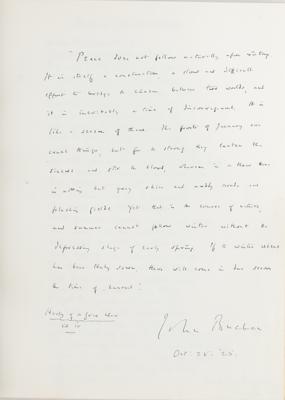 "Peace does not follow naturally upon victory.
It is itself a construction, a slow and difficult
effort to bridge a chasm between two worlds, and
it is inevitably a time of discouragement. It is
like a season of thaw. The frosts of January are
cruel things, but for the strong they tauten the
sinews and stir the blood, whereas in a thaw there
is nothing but grey skies and muddy roads and
fields. Yet that is the course of nature,
and summer cannot follow winter without the
depressing stage of early spring. If a winter wheat
has been sown, there will come in due season
the time of harvest."
History of a Great War
Vol IV
John Buchan
Oct. 25. '25.